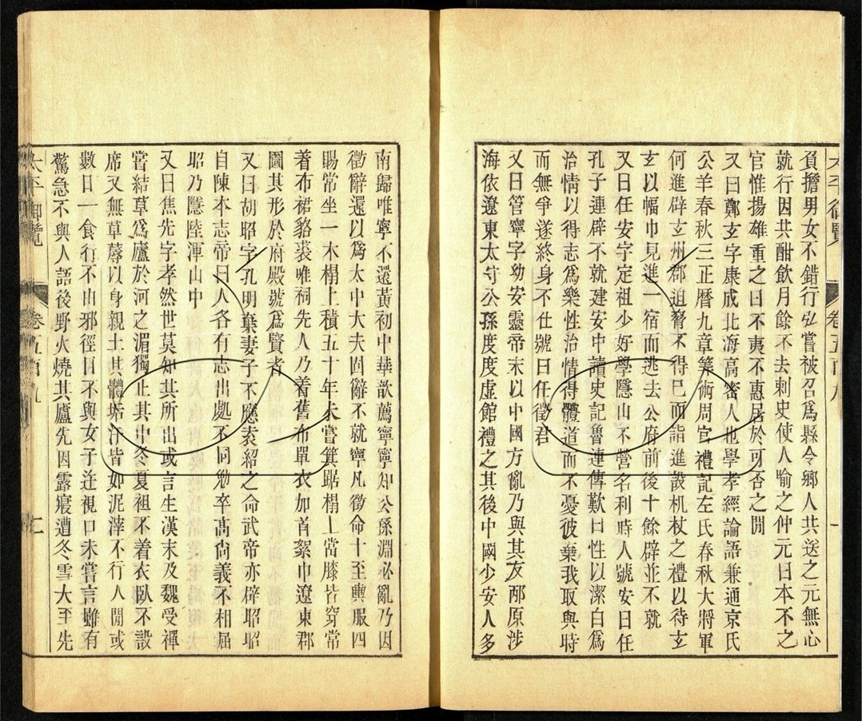 太平御覽 卷五百九 一
負擔男女不錯行弘嘗被召爲縣令鄉人共送之元無心
就行因共酣飲月餘不去刺史使人喻之仲元曰本不之
官惟揚雄重之曰不夷不惠居於可否之間
又曰鄭玄字康成北海高密人也學孝經論語兼通京氏
公羊春秋三正曆九章筭術周官禮記左氏春秋大將軍
何進辟玄州郡迫脅不得已而詣進設机杖之禮以待玄
玄以幅巾見進一宿而逃去公府前後十餘辟並不就
又曰任安字定祖少好學隱山不營名利時人號安曰任
孔子連辟不就建安中讀史記魯連傳歎曰性以潔白爲
治情以得志爲樂性治情得體道而不憂彼棄我取與時
而無爭遂終身不仕號曰任徵君
又曰管寧字幼安靈帝末以中國方亂乃與其友邴原涉
海依遼東太守公孫度度虛館禮之其後中國少安人多
南歸唯寧不還黃初中華歆薦寧寧知公孫淵必亂乃因
徵辭還以爲太中大夫固辭不就寧凡徵命十至輿服四
賜常坐一木榻上積五十年未嘗箕踞榻上當膝皆穿常
着布裙貉裘唯祠先人乃着舊布單衣加首絮巾遼東郡
圖其形於府殿號爲賢者
又曰胡昭字孔明棄妻子不應袁紹之命武帝亦辟昭昭
自陳本志帝曰人各有志出處不同勉卒高尚義不相屈
昭乃隱陸渾山中
又曰焦先字孝然世莫知其所出或言生漢末及魏受禪
嘗結草爲廬於河之湄獨止其中冬夏袒不着衣臥不設
席又無草蓐以身親土其體垢汙皆如泥滓不行人閒或
數日一食行不由邪徑目不與女子迕視口未嘗言雖有
驚急不與人語後野火燒其廬先因露寢遭冬雪大至先
太平御覽 卷五百九